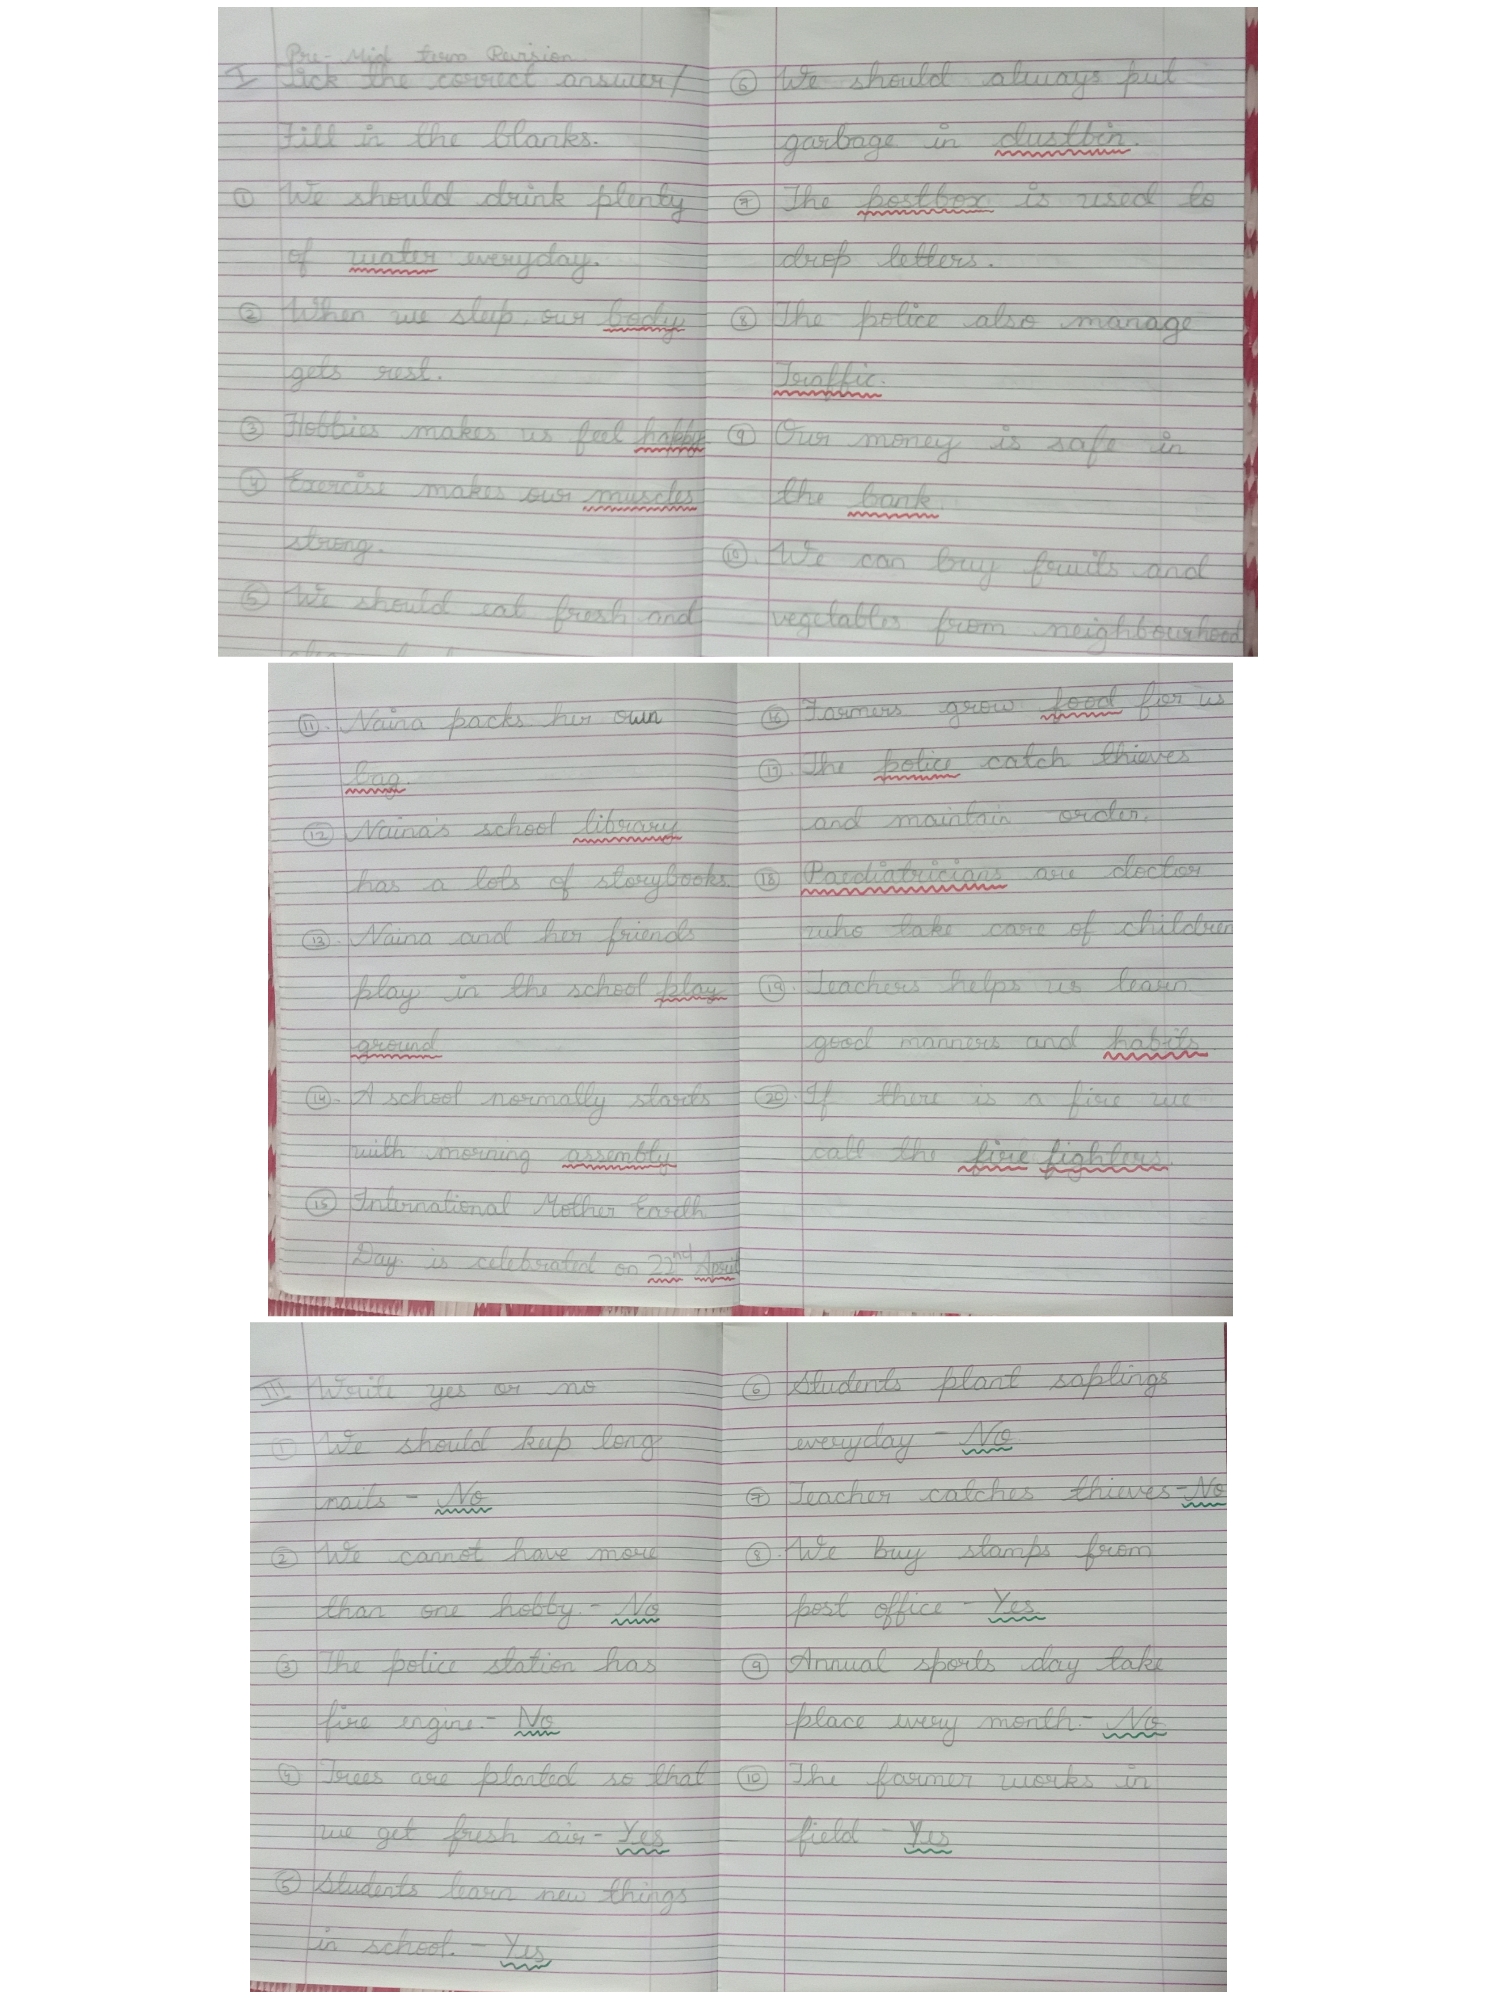 Pre-Mid term Revision
I Tick the correct answer/
Fill in the blanks.
① We should drink plenty
of water everyday.
② When we sleep, our body
gets rest.
③ Hobbies makes us feel happy
④ Exercise makes our muscles
strong.
⑤ We should eat fresh and
⑥ We should always put
garbage in dustbin.
⑦ The postbox is used to
drop letters.
⑧ The police also manage
Traffic.
⑨ Our money is safe in
the bank.
⑩. We can buy fruits and
vegetables from neighbourhood
⑪. Naina packs her own
bag.
⑫ Naina's school library
has a lots of storybooks.
⑬. Naina and her friends
play in the school play
ground
⑭. A school normally starts
with morning assembly
⑮ International Mother Earth
Day is celebrated on 22nd April
⑯ Farmers grow food for us
⑰. The police catch thieves
and maintain order.
⑱ Paediatricians are doctor
who take care of children
⑲. Teachers helps us learn
good manners and habits.
⑳. If there is a fire we
call the fire fighters.
III Write yes or no
① We should keep long
nails - No
② We cannot have more
than one hobby. - No
③ The police station has
fire engine. - No
④ Trees are planted so that
we get fresh air - Yes
⑤ Students learn new things
in school. - Yes
⑥ Students plant saplings
everyday - No
⑦ Teacher catches thieves - No
⑧. We buy stamps from
post office - Yes
⑨ Annual sports day take
place every month. - No
⑩ The farmer works in
field - Yes